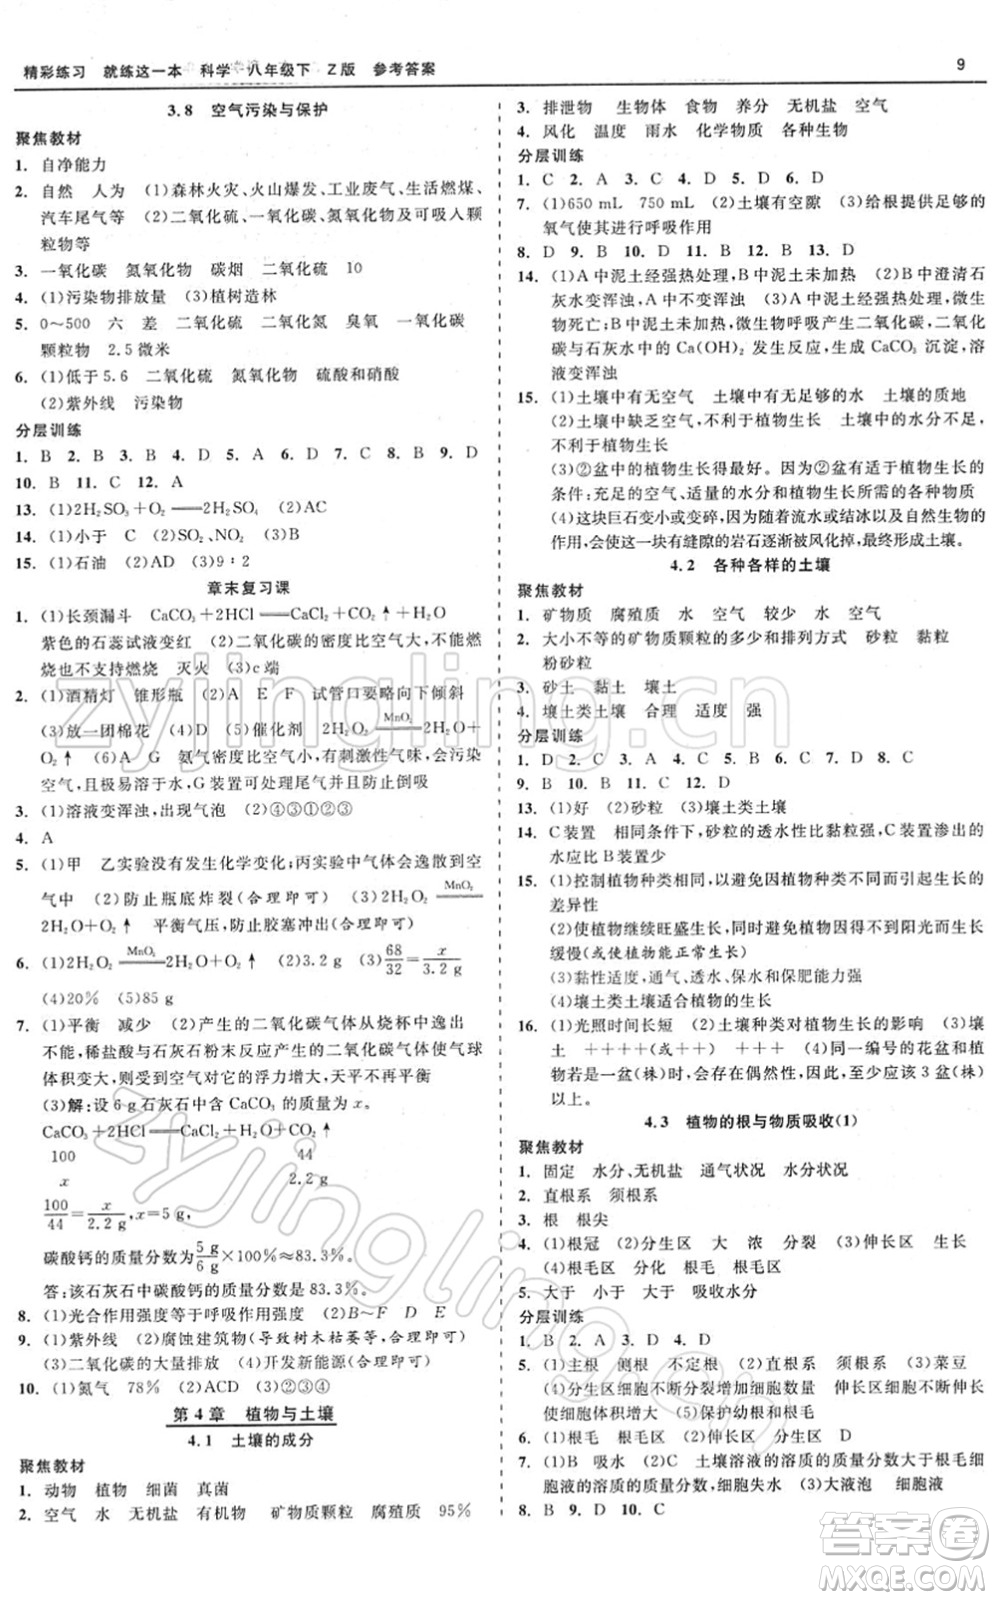 精彩练习 就练这一本 科学 八年级下 Z版 参考答案
9
3.8 空气污染与保护
聚焦教材
1. 自净能力
2. 自然 人为 (1)森林火灾、火山爆发、工业废气、生活燃煤、
汽车尾气等 (2)二氧化硫、一氧化碳、氮氧化物、可吸入颗
粒物等
3. 一氧化碳 氮氧化物 碳烟 二氧化硫 10
4. (1)污染物排放量 (3)植树造林
5. 0~500 六 差 二氧化硫 二氧化氮 臭氧 一氧化碳
颗粒物 2.5 微米
6. (1)低于5.6 二氧化硫 氮氧化物 硫酸和硝酸
(2)紫外线 污染物
分层训练
1. B 2. B 3. B 4. D 5. A 6. D 7. B 8. B 9. D
10. B 11. C 12. A
13. (1)2H₂SO₃+O₂══2H₂SO₄ (2)AC
14. (1)小于 C (2)SO₂、NO₂ (3)B
15. (1)石油 (2)AD (3)9∶2
章末复习课
1. (1)长颈漏斗 CaCO₃+2HCl══CaCl₂+CO₂↑+H₂O
紫色的石蕊试液变红 (2)二氧化碳的密度比空气大,不能燃
烧也不支持燃烧 灭火 (3)c端
2. (1)酒精灯 锥形瓶 (2)A E F 试管口要略向下倾斜
(3)放一团棉花 (5)催化剂 2H₂O₂ MnO₂══2H₂O+
O₂↑ (6)A G 氨气密度比空气小,有刺激性气味,会污染
空气,且极易溶于水,G装置可处理尾气且能防倒吸
3. (1)溶液变浑浊,出现气泡 (2)④③①②③
4. A
5. (1)甲 乙实验没有发生化学变化;丙实验中气体会逸散到空
气中 (2)防止瓶底炸裂(合理即可) (3)2H₂O₂ MnO₂══
2H₂O+O₂↑ 平衡气压,防止胶塞冲出(合理即可)
6. (1)2H₂O₂ MnO₂══2H₂O+O₂↑ (2)3.2 g (3)68/32=x/3.2 g
(4)20% (5)85 g
7. (1)平衡 减少 (2)产生的二氧化碳气体从烧杯中逸出
不能,稀盐酸与石灰石粉末反应产生的二氧化碳气体使气球
体积变大,受到空气对它的浮力增大,天平不能平衡
(3)解:设6 g石灰石中含CaCO₃的质量为x。
CaCO₃+2HCl══CaCl₂+H₂O+CO₂↑
100 44
x 2.2 g
100/44=x/2.2 g,x=5 g,
碳酸钙的质量分数为5 g/6 g×100%≈83.3%。
答:该石灰石中碳酸钙的质量分数是83.3%。
8. (1)光合作用强度等于呼吸作用强度 (2)B~F D E
9. (1)紫外线 (2)腐蚀建筑物(导致树木枯萎等,合理即可)
(3)二氧化碳的大量排放 (4)开发新能源(合理即可)
10. (1)氮气 78% (2)ACD (3)②③④
第4章 植物与土壤
4.1 土壤的成分
聚焦教材
1. 动物 植物 细菌 真菌
2. 空气 水 无机盐 有机物 矿物质颗粒 腐殖质 95%
3. 排泄物 生物体 食物 养分 无机盐 空气
4. 风化 温度 雨水 化学物质 各种生物
分层训练
1. C 2. A 3. C 4. D 5. D 6. A
7. (1)650 mL 750 mL (2)土壤有空隙 (3)给根提供足够的
氧气使其进行呼吸作用
8. D 9. B 10. D 11. B 12. B 13. D
14. (1)A中泥土经强热处理,B中泥土未加热 (2)B中澄清石
灰水变浑浊,A中没有变浑浊 (3)A中泥土经强热处理,微生
物死亡;B中泥土未加热,微生物呼吸产生二氧化碳,二氧化
碳与石灰水中的Ca(OH)₂发生反应,生成CaCO₃沉淀,溶
液变浑浊
15. (1)土壤中有无空气 土壤中有无足够的水 土壤的质地
(2)土壤中缺乏空气,不利于植物生长 土壤中的水分不足,
不利于植物生长
(3)②盆中的植物生长得最好。因为②盆有适于植物生长的
条件:充足的空气、适量的水分和植物生长所需的各种物质
(4)这块巨石变小或变碎,因为随着流水或结冰以及自然生物
的作用,会使这一块有缝隙的岩石逐渐被风化掉,最终消失
4.2 各种各样的土壤
聚焦教材
1. 矿物质 腐殖质 水 空气 较少 水 空气
2. 大小不等的矿物质颗粒的多少和排列方式 砂粒 黏粒
粉砂粒
3. 砂土 黏土 壤土
4. 壤土类土壤 合理 适度 强
分层训练
1. D 2. C 3. C 4. C 5. B 6. B 7. A 8. C
9. B 10. B 11. C 12. D
13. (1)好 (2)砂粒 (3)壤土类土壤
14. C装置 相同条件下,砂粒的透水性比黏粒强,C装置渗出的
水应比B装置少
15. (1)控制植物种类相同,以避免因植物种类不同而引起生长
的差异性
(2)使植物继续旺盛生长,以避免因得不到阳光而生长
缓慢(或使植物能正常生长)
(3)黏性适度,通气、透水、保水和保肥能力强
(4)壤土类土壤适合植物的生长
16. (1)光照时间长短 (2)土壤种类对植物生长的影响 (3)壤
土 ++++(或+++) (4)同一编号的花盆和植
物若是一盆(株)时,误差较大,至少应该3盆(株)或3盆(株)
以上。
4.3 植物的根与物质吸收(1)
聚焦教材
1. 固定 水分、无机盐 通气状况 水分状况
2. 直根系 须根系
3. 根 根尖
4. (1)根冠 (2)分生区 大 浓 分裂 (3)伸长区 生长
(4)根毛区 分化 根毛 根毛区
5. 大于 小于 大于 大于
分层训练
1. B 2. A 3. D 4. D
5. (1)主根 侧根 不定根 (2)直根系 须根系 (3)菜豆
(4)分生区细胞不断分裂增加细胞数量 伸长区细胞伸长
6. (1)②③① (2)伸长区 分生区 D
7. (1)B 吸水 (2)C 土壤溶液的溶质的质量分数大于根毛细
胞液的溶质的质量分数,细胞失水 (3)大液泡 细胞液
8. B 9. D 10. C
答案圈
zyjingling.cn
zyjingling.cn